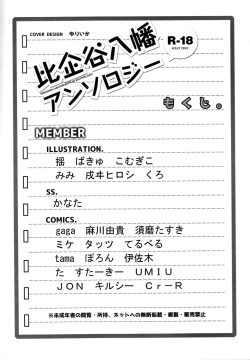 COVER DESIGN ゆりいか
比企谷八幡
アンソロジー
R-18
ADULT ONLY
もくじ。
MEMBER
ILLUSTRATION.
揺 ばきゅ こむぎこ
みみ 戌井ヒロシ くろ
SS.
かなた
COMICS.
gaga 麻川由貴 須磨たすき
ミケ タッツ てるべる
tama ぽろん 伊佐木
た すたーきー UMIU
JON キルシー Cr-R
※未成年者の閲覧・所持、ネットへの無断転載・複製・販売禁止